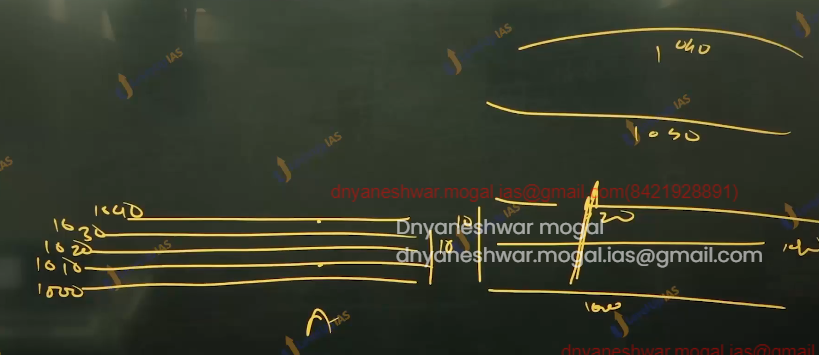 1040
1050
dnyaneshwar.mogal.ias@gmail.com(8421928891)
1040
1030
1020
1010
1000
10
10
20
Dnyaneshwar mogal
dnyaneshwar.mogal.ias@gmail.com
1000
A
IAS
IAS
IAS
IAS
IAS
IAS
IAS
IAS
dnyaneshwar.mogal.ias@gmail.com